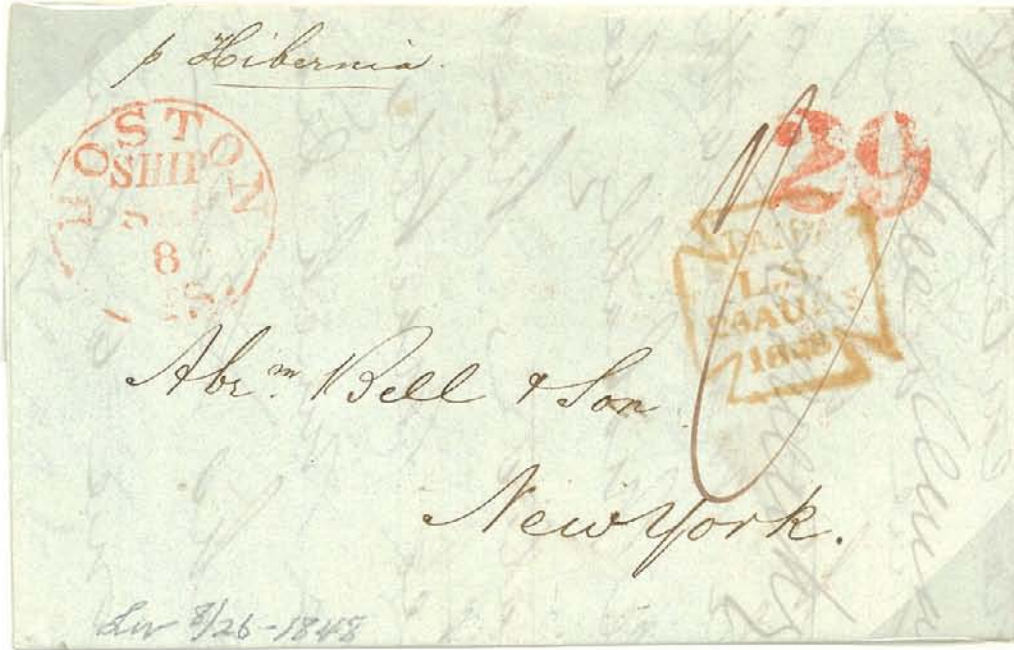 p Hibernia.
BOSTON
SHIP
8
29
L.S.
AU
Abrm. Bell & Son
New York.
Liv 8/26-1848